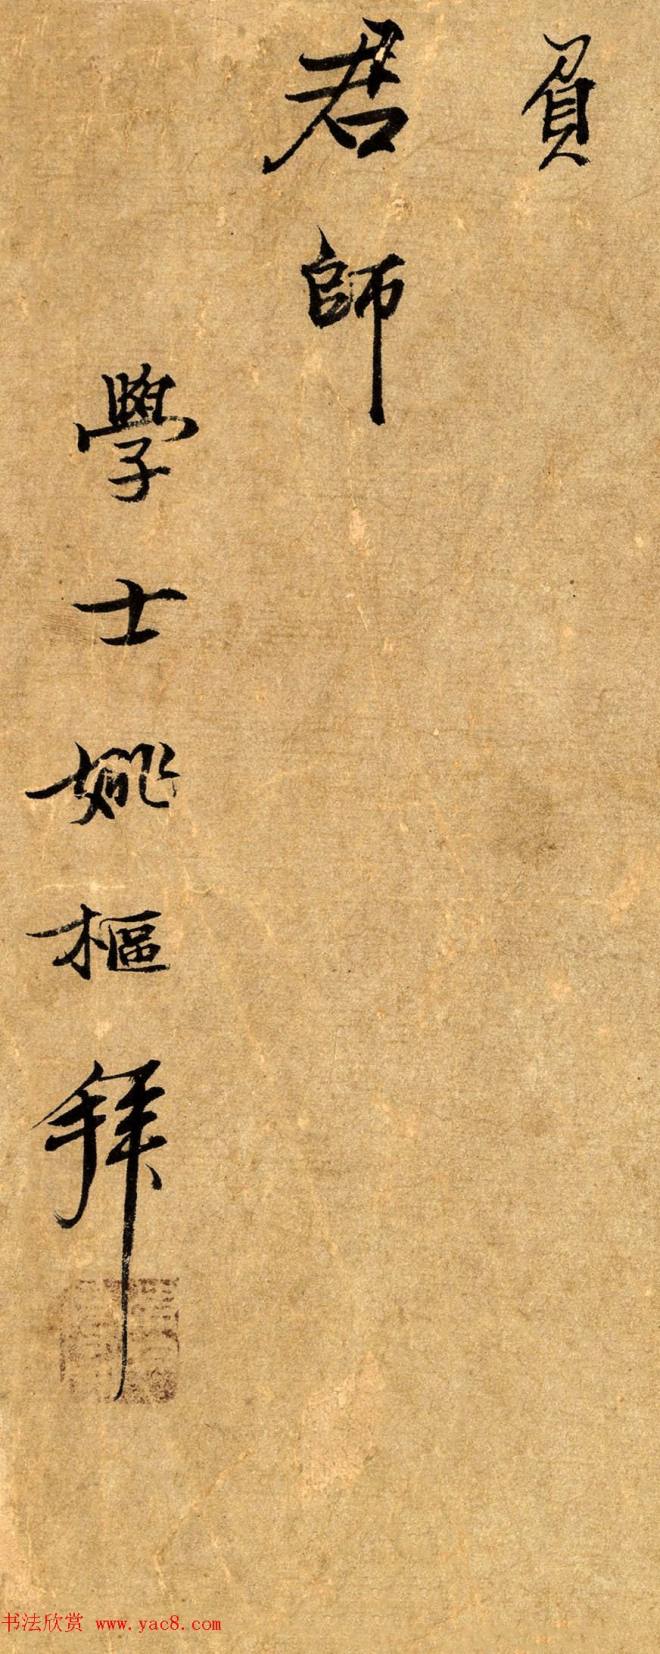 負
君師
學士姚樞拜
书法欣赏 www.yac8.com